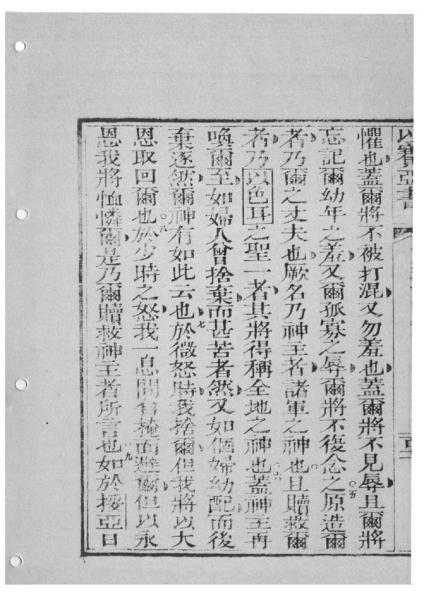 以賽亞書
懼也蓋爾將不被打混又勿羞也蓋爾將不見辱且爾將
忘記爾幼年之羞又爾孤寡之辱爾將不復念之五原造爾
者乃爾之丈夫也厥名乃神主者諸軍之神也且贖救爾
者乃以色耳之聖一者其將得稱全地之神也六蓋神主再
喚爾至如婦人曾捨棄而甚苦者然又如個婦幼配而後
棄逐然爾神有如此云也七於微怒時我捨爾但我將以大
恩取回爾也八於少時之怒我一息間自掩面避爾但以永
恩我將恤憐爾是乃爾贖救神主者所言也九如於挼亞日